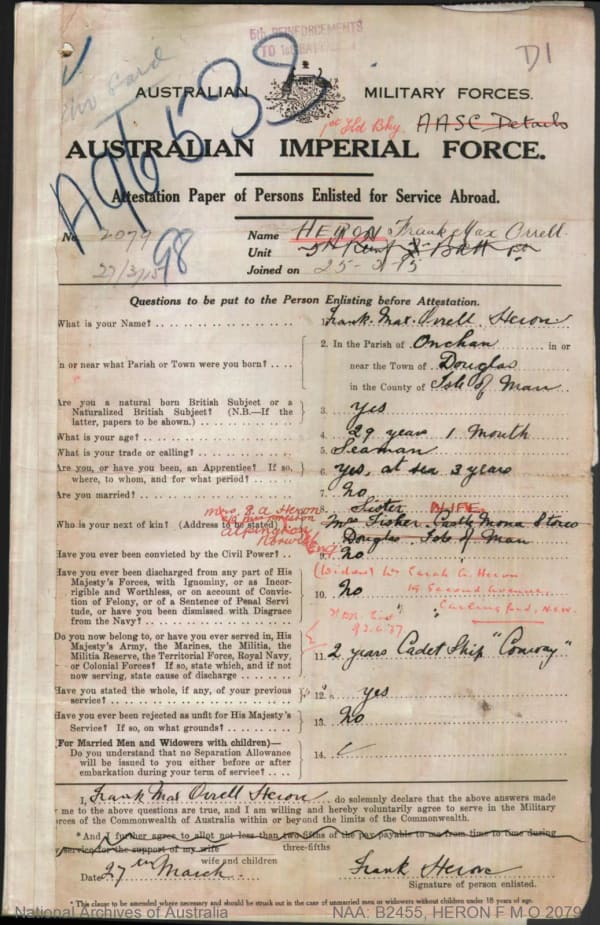 5th REINFORCEMENTS
TO 1st
D1
AUSTRALIAN MILITARY FORCES.
A96538
1st Fld Bky. AASC Details
AUSTRALIAN IMPERIAL FORCE.
Attestation Paper of Persons Enlisted for Service Abroad.
No. 2079 Name HERON Frank Max Orrell
98
27/3/15 Unit
Joined on 25-3-15
Questions to be put to the Person Enlisting before Attestation.
What is your Name? 1. Frank Max Orrell Heron
2. In the Parish of Onchan in or
In or near what Parish or Town were you born? near the Town of Douglas
in the County of Isle of Man
Are you a natural born British Subject or a
Naturalized British Subject? (N.B.—If the 3. Yes
latter, papers to be shown.)
What is your age? 4. 29 years 1 Month
What is your trade or calling? 5. Seaman
Are you, or have you been, an Apprentice? If so, 6. Yes, at sea 3 years
where, to whom, and for what period?
Are you married? 7. No
Mrs. Heron 8. Sister WIFE.
Who is your next of kin? (Address to be stated) Mrs Fisher Castle Mona Stores
Alpington Norwich Eng Douglas Isle of Man
Have you ever been convicted by the Civil Power? 9. No
Have you ever been discharged from any part of His (Widow) Mrs Sarah A. Heron
Majesty's Forces, with Ignominy, or as Incor-
rigible and Worthless, or on account of Convic- 10. No 19 Second Avenue
tion of Felony, or of a Sentence of Penal Servi-
tude, or have you been dismissed with Disgrace Carlingford, N.S.W.
from the Navy?
Do you now belong to, or have you ever served in, His
Majesty's Army, the Marines, the Militia, the
Militia Reserve, the Territorial Force, Royal Navy, 11. 2 years Cadet Ship "Conway"
or Colonial Forces? If so, state which, and if not
now serving, state cause of discharge
Have you stated the whole, if any, of your previous 12. yes
service?
Have you ever been rejected as unfit for His Majesty's 13. No
Service? If so, on what grounds?
(For Married Men and Widowers with children)—
Do you understand that no Separation Allowance 14.
will be issued to you either before or after
embarkation during your term of service?
I, Frank Max Orrell Heron do solemnly declare that the above answers made
me to the above questions are true, and I am willing and hereby voluntarily agree to serve in the Military
orces of the Commonwealth of Australia within or beyond the limits of the Commonwealth.
* And I further agree to allot not less than two-fifths of the pay payable to me from time to time during
three-fifths
service for the support of my wife
wife and children
Date 27th March. Frank Heron
Signature of person enlisted.
* This clause to be amended where necessary and should be struck out in the case of unmarried men or widowers without children under 18 years of age.
National Archives of Australia NAA: B2455, HERON F M O 2079